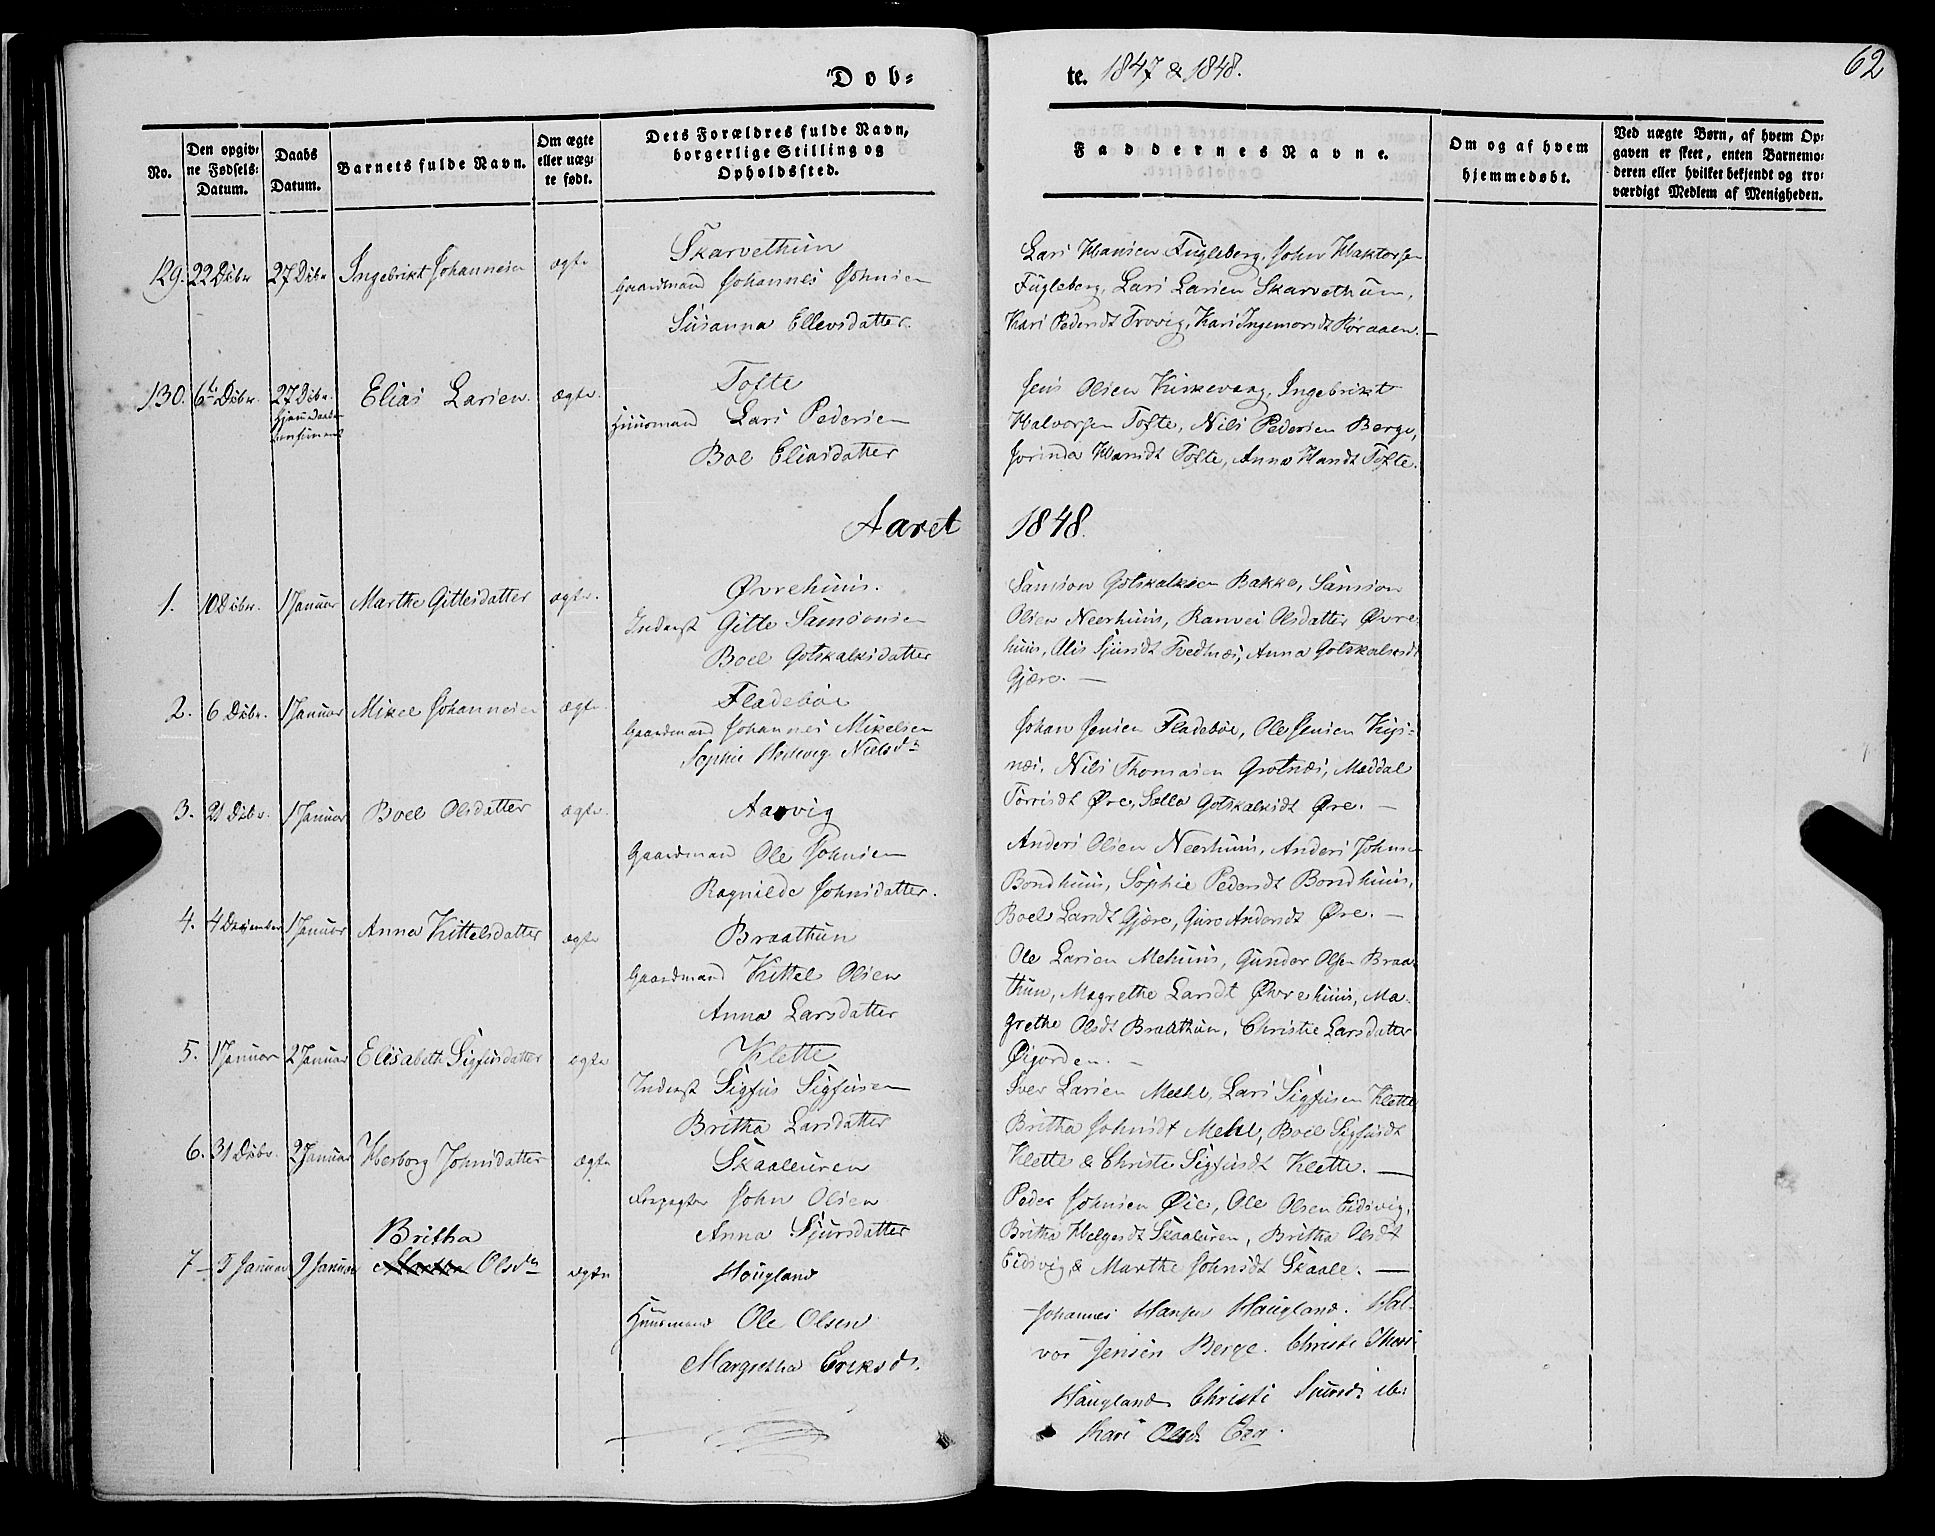 Dob-
te. 1847 & 1848.
62
No.
Den opgiv-
ne Fødsels-
Datum.
Daabs
Datum.
Barnets fulde Navn.
Om ægte
eller uæg-
te født.
Dets Forældres fulde Navn,
borgerlige Stilling og
Opholdssted.
Faddernes Navne.
Om og af hvem
hjemmedøbt.
Ved uægte Børn, af hvem Op-
gaven er skeet, enten Barnemo-
deren eller hvilket bekjendt og tro-
værdigt Medlem af Menigheden.
129. 22 Dcbr 27 Dcbr Ingebrikt Johannesen ægte
Skarvethun
Gaardmand Johannes Johnsen
Susanna Ellevsdatter.
Lars Hansen Fugleberg, John Haktorsen
Fugleberg, Lars Larsen Skarvethun,
Kari Pedersdt Trovig, Kari Ingemorsdt Røraaen.
130. 6te Dcbr. 27 Dcbr. Elias Larsen. ægte.
Hjemdøbt
Tofte
Huusmand Lars Pedersen
Boel Eliasdatter
Jens Olsen Kirkevaag, Ingebrikt
Halvorsen Tofte, Nils Pedersen Berge,
Jorinda Hansdt Tofte, Anna Hansdt Tofte.
Aaret 1848.
1. 10 Dcbr. 1 Januar Marthe Gittesdatter ægte.
Øvrehuus.
Inderst Gitte Samsonsen
Boel Gotskalksdatter
Samson Gotskalksen Bakke, Samson
Olsen Neerhuus, Ranvei Olsdatter Øvre
huus, Alis Sjursdt Tvedtnes, Anna Gotskalksdt
Gjære.
2. 6 Dcbr. 1 Januar Mikel Johannesen ægte
Fladebøe
Gaardmand Johannes Mikelsen
Sophie Hedevig Nielsdr
Johan Jensen Fladebøe, Ole Jensen Kys-
nes, Nils Thomasen Grotnes, Maddal
Torrisdt Øre, Sella Gotskalksdt Øre.
3. 21 Dcbr. 1 Januar Boel Olsdatter ægte.
Aarvig
Gaardmand Ole Johnsen
Ragnilde Johnsdatter.
Anders Olsen Neerhuus, Anders Johnsen
Bondhuus, Sophie Pedersdt Bondhuus,
Boel Larsdt Gjære, Guro Andersdt Øre.
4. 4 December 1 Januar Anna Kittelsdatter ægte
Braathun
Gaardmand Kittel Olsen
Anna Larsdatter
Ole Larsen Mehuus, Gunder Olsen Braa-
thun, Magrethe Larsdt Øvrehuus, Ma-
grethe Olsdt Braathun, Christie Larsdatter
Øigorden.
5. 1 Januar 2 Januar Elisabeth Sigfusdatter ægte
Klette
Inderst Sigfus Sigfusen
Britha Larsdatter
Iver Larsen Mehl, Lars Sigfusen Klette
Britha Johnsdt Mehl, Boel Sigfusdt
Klette & Christi Sigfusdt Klette.
6. 31 Dcbr. 2 Januar Herborg Johnsdatter ægte
Skaaleuren
Forpagter John Olsen
Anna Sjursdatter
Peder Johnsen Øie, Ole Olsen Eidsvig,
Britha Helgesdt Skaaluren, Britha Olsdt
Eidsvig, & Marthe Johnsdt Skaale.
Britha
7 5 Januar 9 Januar Olsdr ægte
Hougland
Huusmand Ole Olsen
Margretha Eriksd.
Johannes Hansen Haugland. Hal-
vor Jensen Berge. Christi
Haugland. Christi Sjursd.
Kari Olsd.